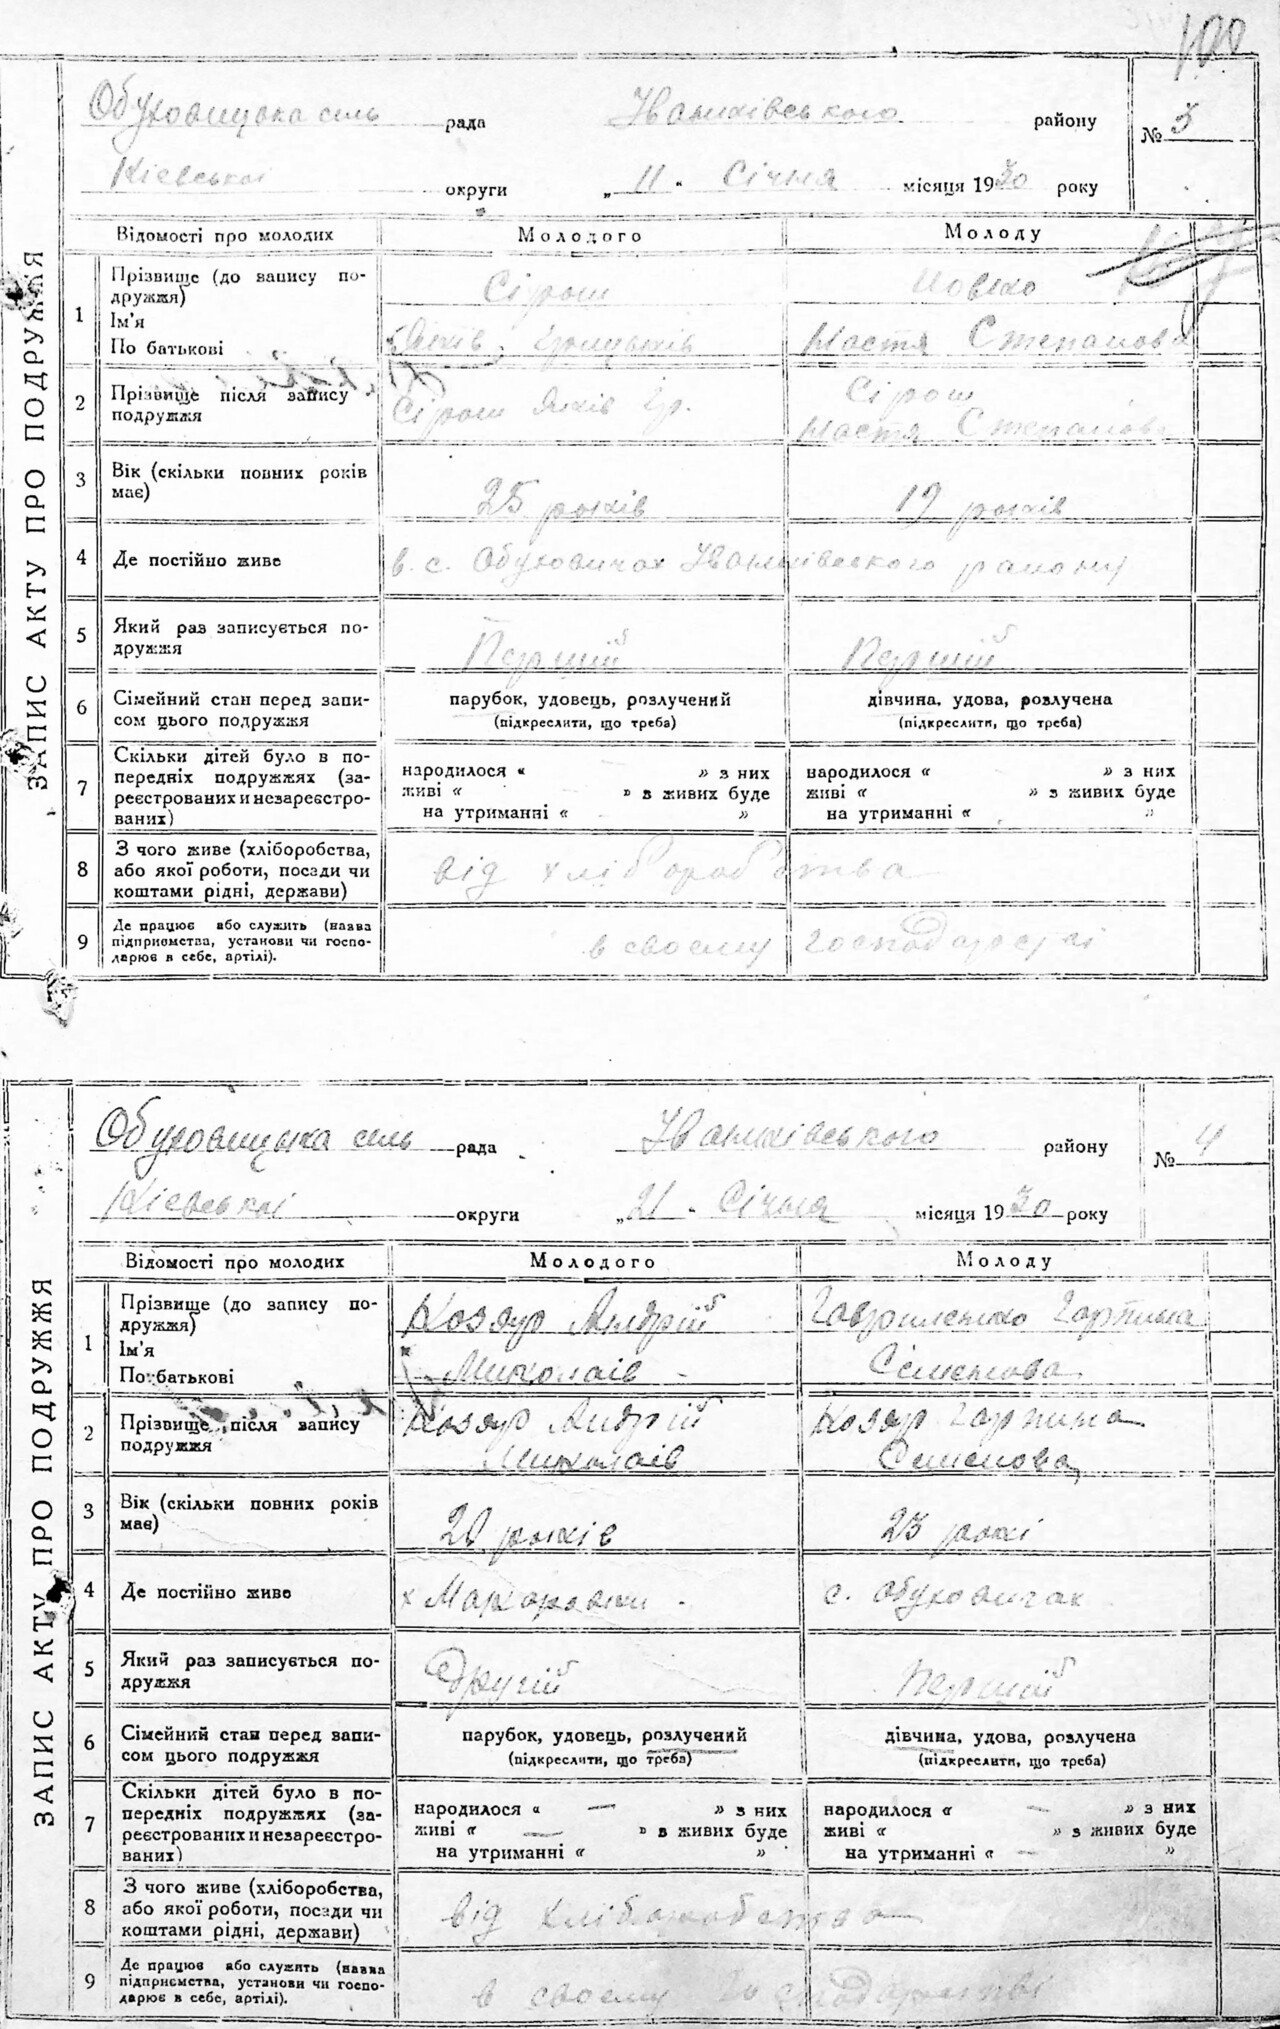 100
ЗАПИС АКТУ ПРО ПОДРУЖЖЯ
Обуховицька сіль рада Іванківського району № 3
Київської округи „11" Січня місяця 1930 року
Відомості про молодих Молодого Молоду
1 Прізвище (до запису по-
дружжя)
Ім'я
По батькові
Сірош
Яків Грицьків
Настя Степанова
2 Прізвище після запису
подружжя
Сірош Яків Гр.
Сірош
Настя Степанова
3 Вік (скільки повних років
має)
25 років 19 років
4 Де постійно живе в. с. Обуховичах Іванківського району
5 Який раз записується по-
дружжя
Перший Перший
6 Сімейний стан перед запи-
сом цього подружжя
парубок, удовець, розлучений
(підкреслити, що треба)
дівчина, удова, розлучена
(підкреслити, що треба)
7 Скільки дітей було в по-
передніх подружжях (за-
реєстрованих и незареєстро-
ваних)
народилося « » з них
живі « » з живих буде
на утриманні « »
народилося « » з них
живі « » з живих буде
на утриманні « »
8 З чого живе (хліборобства,
або якої роботи, посади чи
коштами рідні, держави)
від хліборобства
9 Де працює або служить (назва
підприємства, установи чи госпо-
дарює в себе, артілі).
в своєму господарстві
ЗАПИС АКТУ ПРО ПОДРУЖЖЯ
Обуховицька сіль рада Іванківського району № 4
Київської округи „21" Січня місяця 1930 року
Відомості про молодих Молодого Молоду
1 Прізвище (до запису по-
дружжя)
Ім'я
По батькові
Козяр Андрій
Миколаїв
Гавриленко Гарпина
Семенова
2 Прізвище після запису
подружжя
Козяр Андрій
Миколаїв
Козяр Гарпина
Семенова
3 Вік (скільки повних років
має)
років 23 рокі
4 Де постійно живе х с. Обуховичах
5 Який раз записується по-
дружжя
Другій Перший
6 Сімейний стан перед запи-
сом цього подружжя
парубок, удовець, розлучений
(підкреслити, що треба)
дівчина, удова, розлучена
(підкреслити, що треба)
7 Скільки дітей було в по-
передніх подружжях (за-
реєстрованих и незареєстро-
ваних)
народилося « — » з них
живі « — » з живих буде
на утриманні « »
народилося « — » з них
живі « » з живих буде
на утриманні « — »
8 З чого живе (хліборобства,
або якої роботи, посади чи
коштами рідні, держави)
від хліборобства
9 Де працює або служить (назва
підприємства, установи чи госпо-
дарює в себе, артілі).
в своєму господарстві